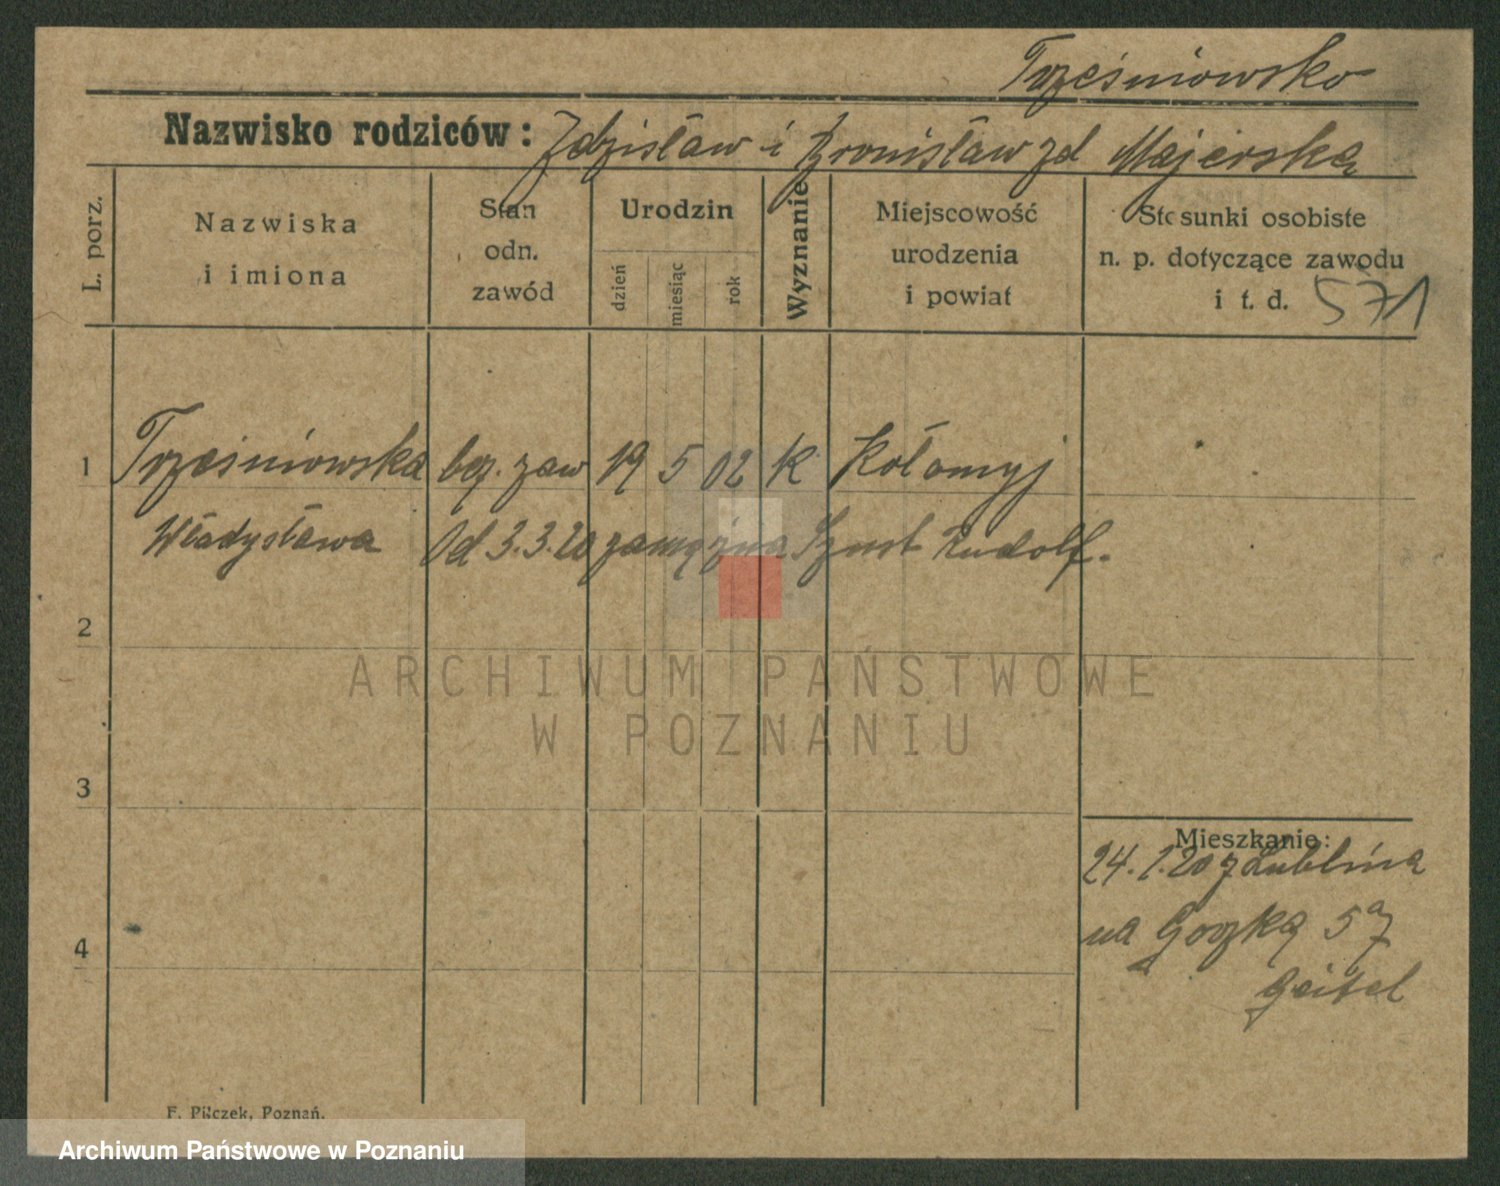 Trześniowska
Nazwisko rodziców: Zdzisław i Bronisław zd Majerską
L. porz.
Nazwiska
i imiona
Stan
odn.
zawód
Urodzin
dzień
miesiąc
rok
Wyznanie
Miejscowość
urodzenia
i powiat
Stosunki osobiste
n. p. dotyczące zawodu
i t. d. 571
1 Trześniowska bez. zaw 19 5 02 K Kołomyj
Władysława Od 3.3.20 zamężna Rudolf.
2
3
4
Mieszkanie:
24.1.20 z Lublina
na 5a
F. Pilczek, Poznań.
ARCHIWUM PAŃSTWOWE
W POZNANIU
Archiwum Państwowe w Poznaniu